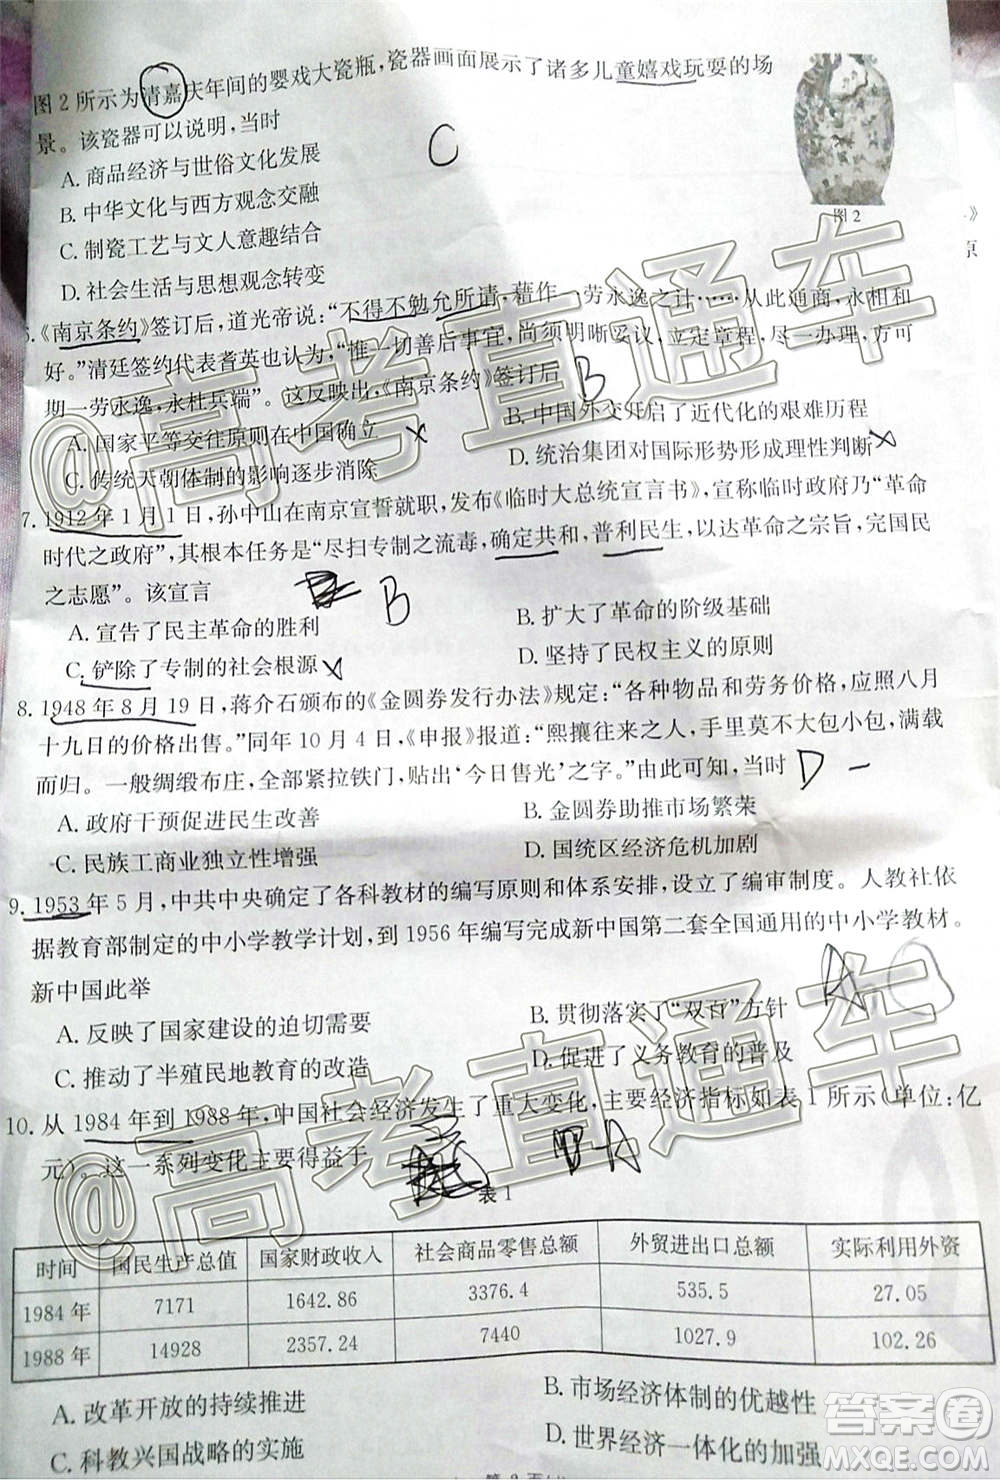 图2所示为清嘉庆年间的婴戏大瓷瓶,瓷器画面展示了诸多儿童嬉戏玩耍的场
景。该瓷器可以说明,当时
C
A. 商品经济与世俗文化发展
B. 中华文化与西方观念交融
C. 制瓷工艺与文人意趣结合
D. 社会生活与思想观念转变
图2
》
原
《南京条约》签订后,道光帝说:“不得不勉允所请,藉作一劳永逸之计……从此通商,永相和
好。”清廷签约代表耆英也认为:“惟一切善后事宜,尚须明晰妥议,立定章程,尽一办理,方可
期一劳永逸,永杜兵端”。这反映出,《南京条约》签订后
B
A. 国家平等交往原则在中国确立
B. 中国外交开启了近代化的艰难历程
C. 传统天朝体制的影响逐步消除
D. 统治集团对国际形势形成理性判断
7. 1912年1月1日,孙中山在南京宣誓就职,发布《临时大总统宣言书》,宣称临时政府乃“革命
时代之政府”,其根本任务是“尽扫专制之流毒,确定共和,普利民生,以达革命之宗旨,完国民
之志愿”。该宣言
B
A. 宣告了民主革命的胜利
B. 扩大了革命的阶级基础
C. 铲除了专制的社会根源
D. 坚持了民权主义的原则
8. 1948年8月19日,蒋介石颁布的《金圆券发行办法》规定:“各种物品和劳务价格,应照八月
十九日的价格出售。”同年10月4日,《申报》报道:“熙攘往来之人,手里莫不大包小包,满载
而归。一般绸缎布庄,全部紧拉铁门,贴出‘今日售光’之字。”由此可知,当时
D
A. 政府干预促进民生改善
B. 金圆券助推市场繁荣
C. 民族工商业独立性增强
D. 国统区经济危机加剧
9. 1953年5月,中共中央确定了各科教材的编写原则和体系安排,设立了编审制度。人教社依
据教育部制定的中小学教学计划,到1956年编写完成新中国第二套全国通用的中小学教材。
新中国此举
A
A. 反映了国家建设的迫切需要
B. 贯彻落实了“双百”方针
C. 推动了半殖民地教育的改造
D. 促进了义务教育的普及
10. 从1984年到1988年,中国社会经济发生了重大变化,主要经济指标如表1所示(单位:亿
元)。这一系列变化主要得益于
A
表1
时间 国民生产总值 国家财政收入 社会商品零售总额 外贸进出口总额 实际利用外资
1984年 7171 1642.86 3376.4 535.5 27.05
1988年 14928 2357.24 7440 1027.9 102.26
A. 改革开放的持续推进
B. 市场经济体制的优越性
C. 科教兴国战略的实施
D. 世界经济一体化的加强
@高考直通车
@高考直通车
答案圈
MXQE.COM